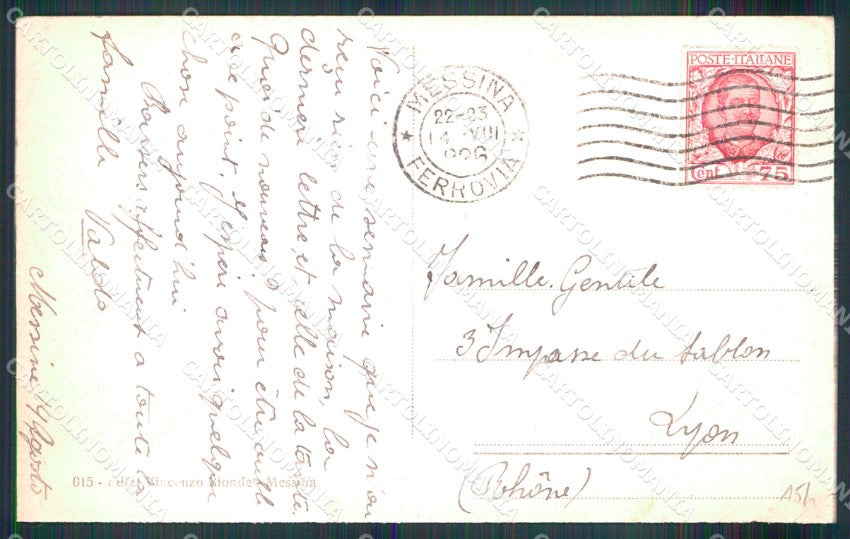 Voici une semaine que je n'ai
reçu rien de la maison, La
derniere lettre est celle de la tante.
Quoi de nouveau? pour être
à ce point. J'espère avoir quelque
chose aujourd'hui
Baisers affectueux a toute la
famille Valdo
Messine 4 Agosto
015 - Ediz. Vincenzo Mondello Messina
MESSINA
22-23
14 VIII
926
FERROVIA
POSTE·ITALIANE
Cent. 75
Famille Gentile
3 Impasse du Sablon
Lyon
(Rhône)
15/
CARTOLINOMANIA